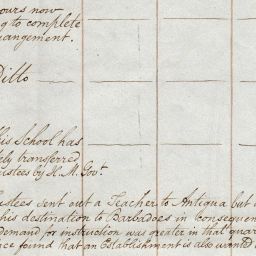 ours now
g to complete
rangement.
Ditto
his School has
ely transferred
ustees by H. M. Govt.
ustees sent out a Teacher to Antigua but
his destination to Barbadoes in consequen
demand for instruction was greater in that quar
ce found that an Establishment is also wanted